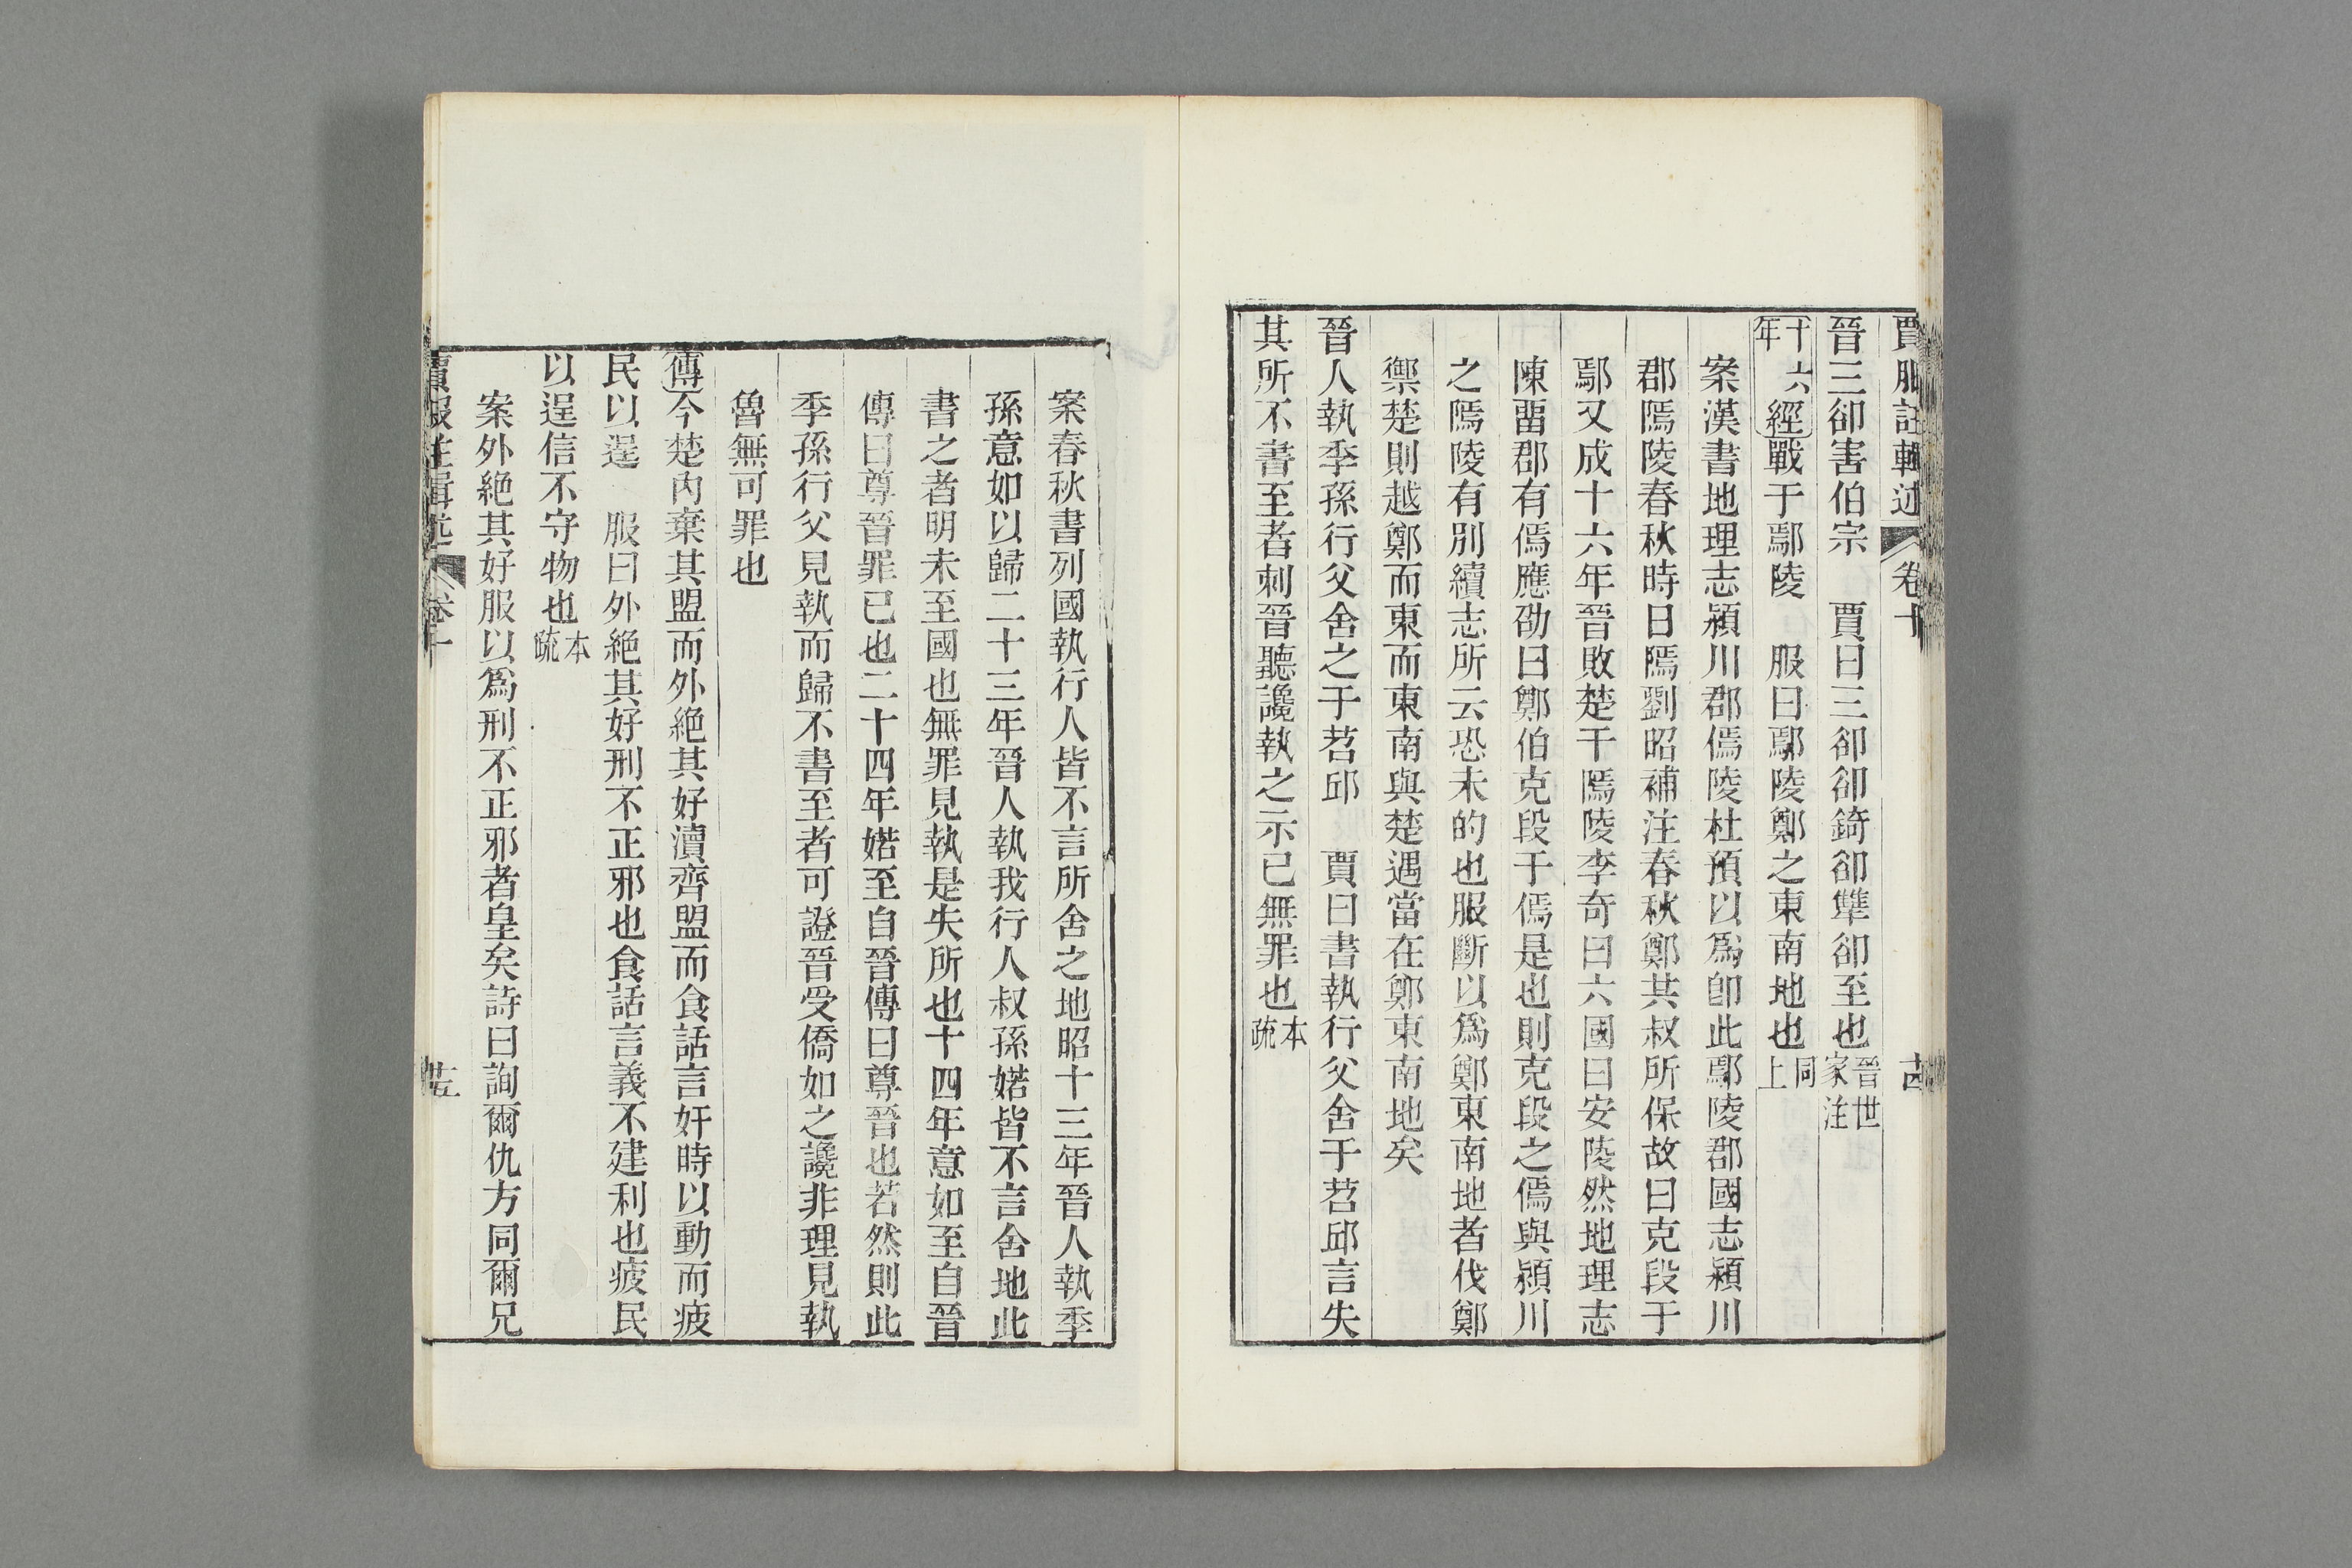 賈服註輯述 卷十 十四
晉三卻害伯宗 賈曰三卻卻錡卻犨卻至也晉世家注
十六年經戰于鄢陵 服曰鄢陵鄭之東南地也同上
案漢書地理志潁川郡傿陵杜預以爲卽此鄢陵郡國志潁川
郡隖陵春秋時曰隖劉昭補注春秋鄭共叔所保故曰克段于
鄢又成十六年晉敗楚于隖陵李奇曰六國曰安陵然地理志
陳畱郡有傿應劭曰鄭伯克段于傿是也則克段之傿與潁川
之隖陵有別續志所云恐未的也服斷以爲鄭東南地者伐鄭
禦楚則越鄭而東而東南與楚遇當在鄭東南地矣
晉人執季孫行父舍之于苕邱 賈曰書執行父舍于苕邱言失
其所不書至者刺晉聽讒執之示已無罪也本疏
案春秋書列國執行人皆不言所舍之地昭十三年晉人執季
孫意如以歸二十三年晉人執我行人叔孫婼皆不言舍地此
書之者明未至國也無罪見執是失所也十四年意如至自晉
傳曰尊晉罪已也二十四年婼至自晉傳曰尊晉也若然則此
季孫行父見執而歸不書至者可證晉受僑如之讒非理見執
魯無可罪也
傳今楚內棄其盟而外絶其好瀆齊盟而食話言奸時以動而疲
民以逞 服曰外絶其好刑不正邪也食話言義不建利也疲民
以逞信不守物也本疏
案外絶其好服以爲刑不正邪者皇矣詩曰詢爾仇方同爾兄
賈服註輯述 卷十 十五